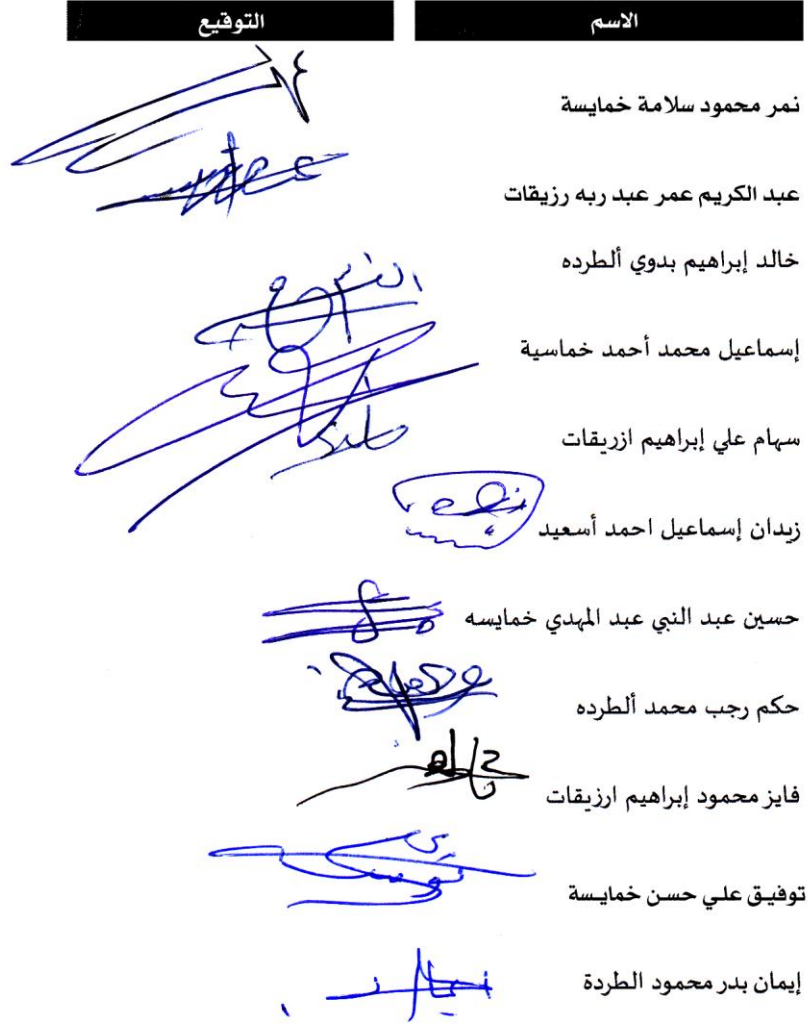 الاسم التوقيع
نمر محمود سلامة خمايسة
عبد الكريم عمر عبد ربه رزيقات
خالد إبراهيم بدوي ألطرده
إسماعيل محمد أحمد خماسية
سهام علي إبراهيم ازريقات
زيدان إسماعيل احمد أسعيد
حسين عبد النبي عبد المهدي خمايسه
حكم رجب محمد ألطرده
فايز محمود إبراهيم ارزيقات
توفيق علي حسن خمايسة
إيمان بدر محمود الطردة